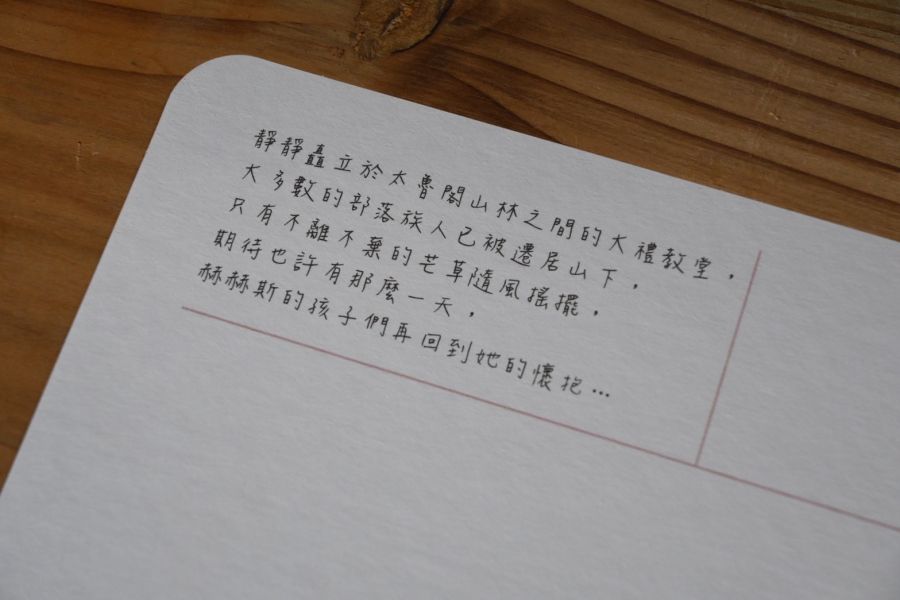 靜靜矗立於太魯閣山林之間的大禮教堂，
大多數的部落族人已被遷居山下，
只有不離不棄的芒草隨風搖擺，
期待也許有那麼一天，
赫赫斯的孩子們再回到她的懷抱…